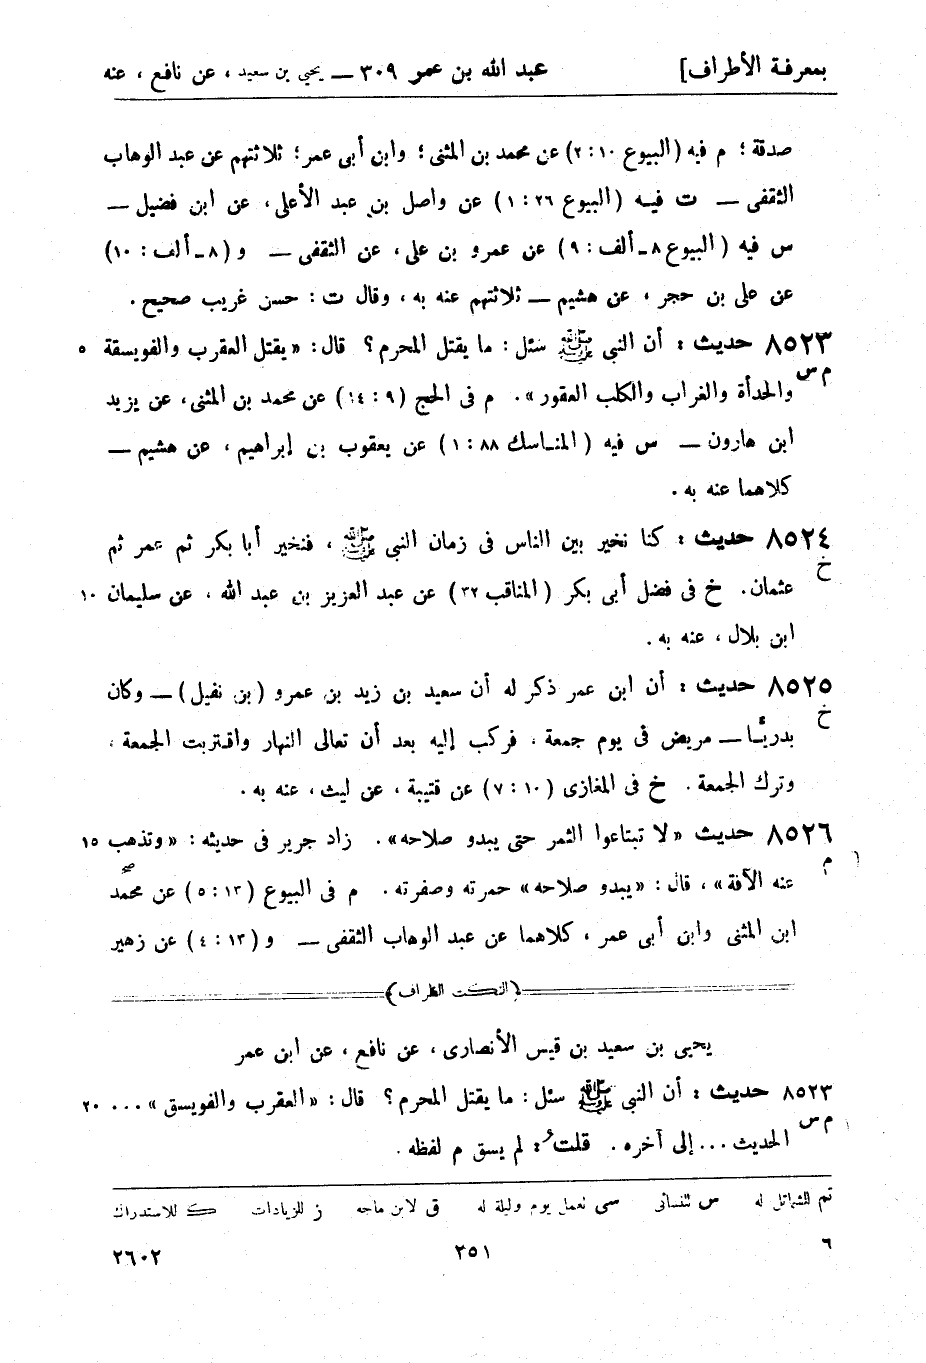 بمعرفة الأطراف] عبد الله بن عمر ٣٠٩ — يحيي بن سعيد ، عن نافع ، عنه
صدقة ؛ م فيه (البيوع ١٠ : ٢) عن محمد بن المثنى؛ وابن أبى عمر؛ ثلاثتهم عن عبد الوهاب
الثقفى — ت فيه (البيوع ٢٦ : ١) عن واصل بن عبد الأعلى، عن ابن فضيل —
س فيه (البيوع ٨ ـ ألف : ٩) عن عمرو بن على، عن الثقفى — و (٨ ـ ألف : ١٠)
عن على بن حجر ، عن هشيم — ثلاثتهم عنه به ، وقال ت : حسن غريب صحيح .
٨٥٢٣ حديث : أن النبي ﷺ سئل : ما يقتل المحرم ؟ قال: «يقتل العقرب والفويسقة ٥
م س والحدأة والغراب والكلب العقور». م فى الحج (٩ : ١٤) عن محمد بن المثنى، عن يزيد
ابن هارون — س فيه (المناسك ٨٨ : ١) عن يعقوب بن إبراهيم ، عن هشيم —
كلاهما عنه به .
٨٥٢٤ حديث : كنا نخير بين الناس فى زمان النبى ﷺ ، فنخير أبا بكر ثم عمر ثم
خ عثمان. خ فى فضل أبى بكر (المناقب ٣٢) عن عبد العزيز بن عبد الله ، عن سليمان ١٠
ابن بلال ، عنه به .
٨٥٢٥ حديث : أن ابن عمر ذكر له أن سعيد بن زيد بن عمرو (بن نفيل) — وكان
خ بدريًّا — مريض فى يوم جمعة ، فركب إليه بعد أن تعالى النهار واقتربت الجمعة ،
وترك الجمعة . خ فى المغازى (١٠ : ٧) عن قتيبة ، عن ليث، عنه به .
٨٥٢٦ حديث «لا تبتاعوا الثمر حتى يبدو صلاحه». زاد جرير فى حديثه : «وتذهب ١٥
م عنه الآفة» ، قال : «يبدو صلاحه» حمرته وصفرته . م فى البيوع (١٣ : ٥) عن محمد
ابن المثنى وابن أبى عمر ، كلاهما عن عبد الوهاب الثقفى — و (١٣ : ٤) عن زهير
(النكت الظراف)
يحيى بن سعيد بن قيس الأنصارى ، عن نافع ، عن ابن عمر
٨٥٢٣ حديث : أن النبى ﷺ سئل : ما يقتل المحرم ؟ قال : «العقرب والفويسق» ... ٢٠
م س الحديث ... إلى آخره . قلت : لم يسق م لفظه .
تم للشمائل له س للنسائى سى لعمل يوم وليلة له ق لابن ماجه ز للزيادات ك للاستدراك
٦ ٢٥١ ٢٦٠٢